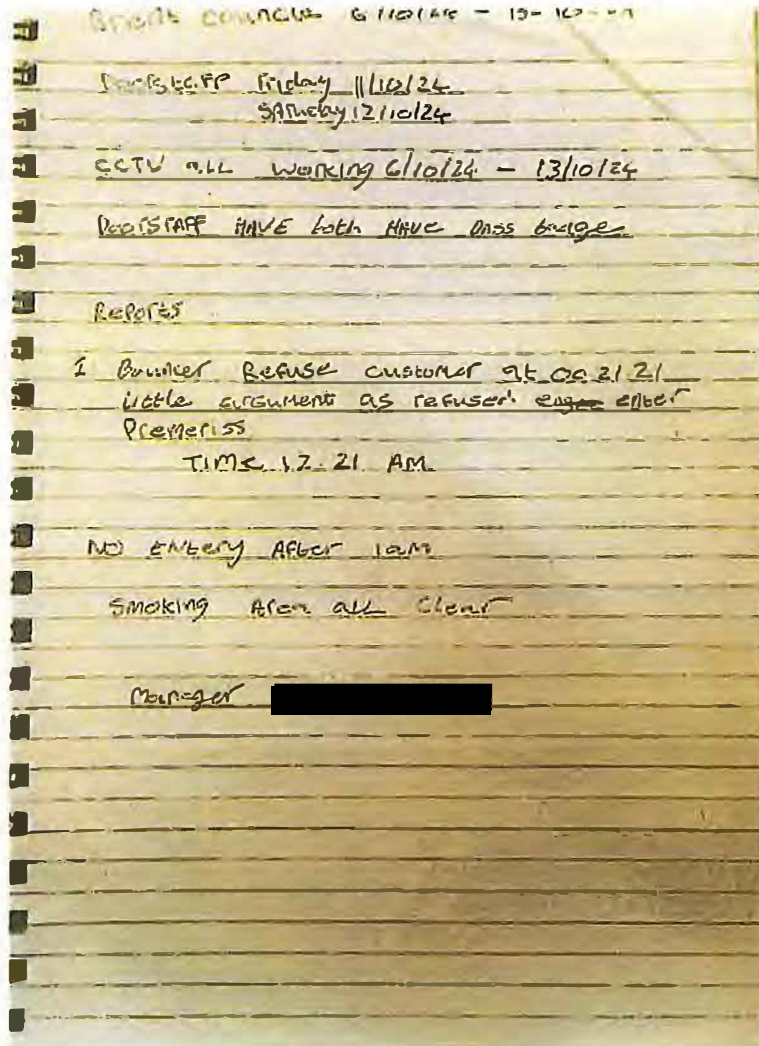 Brent council 6/10/24 - 13-10-24
Doorstaff Friday 11/10/24
SATurday 12/10/24
CCTV all working 6/10/24 - 13/10/24
DoorSTAFF HAVE both HAVE pass badge
Reports
1 Bouncer Refuse customer at 00 21 21
little argument as refused enter
Premeriss
TIME 12 21 AM
NO ENtery After 1am
Smoking Area all Clear
Manager